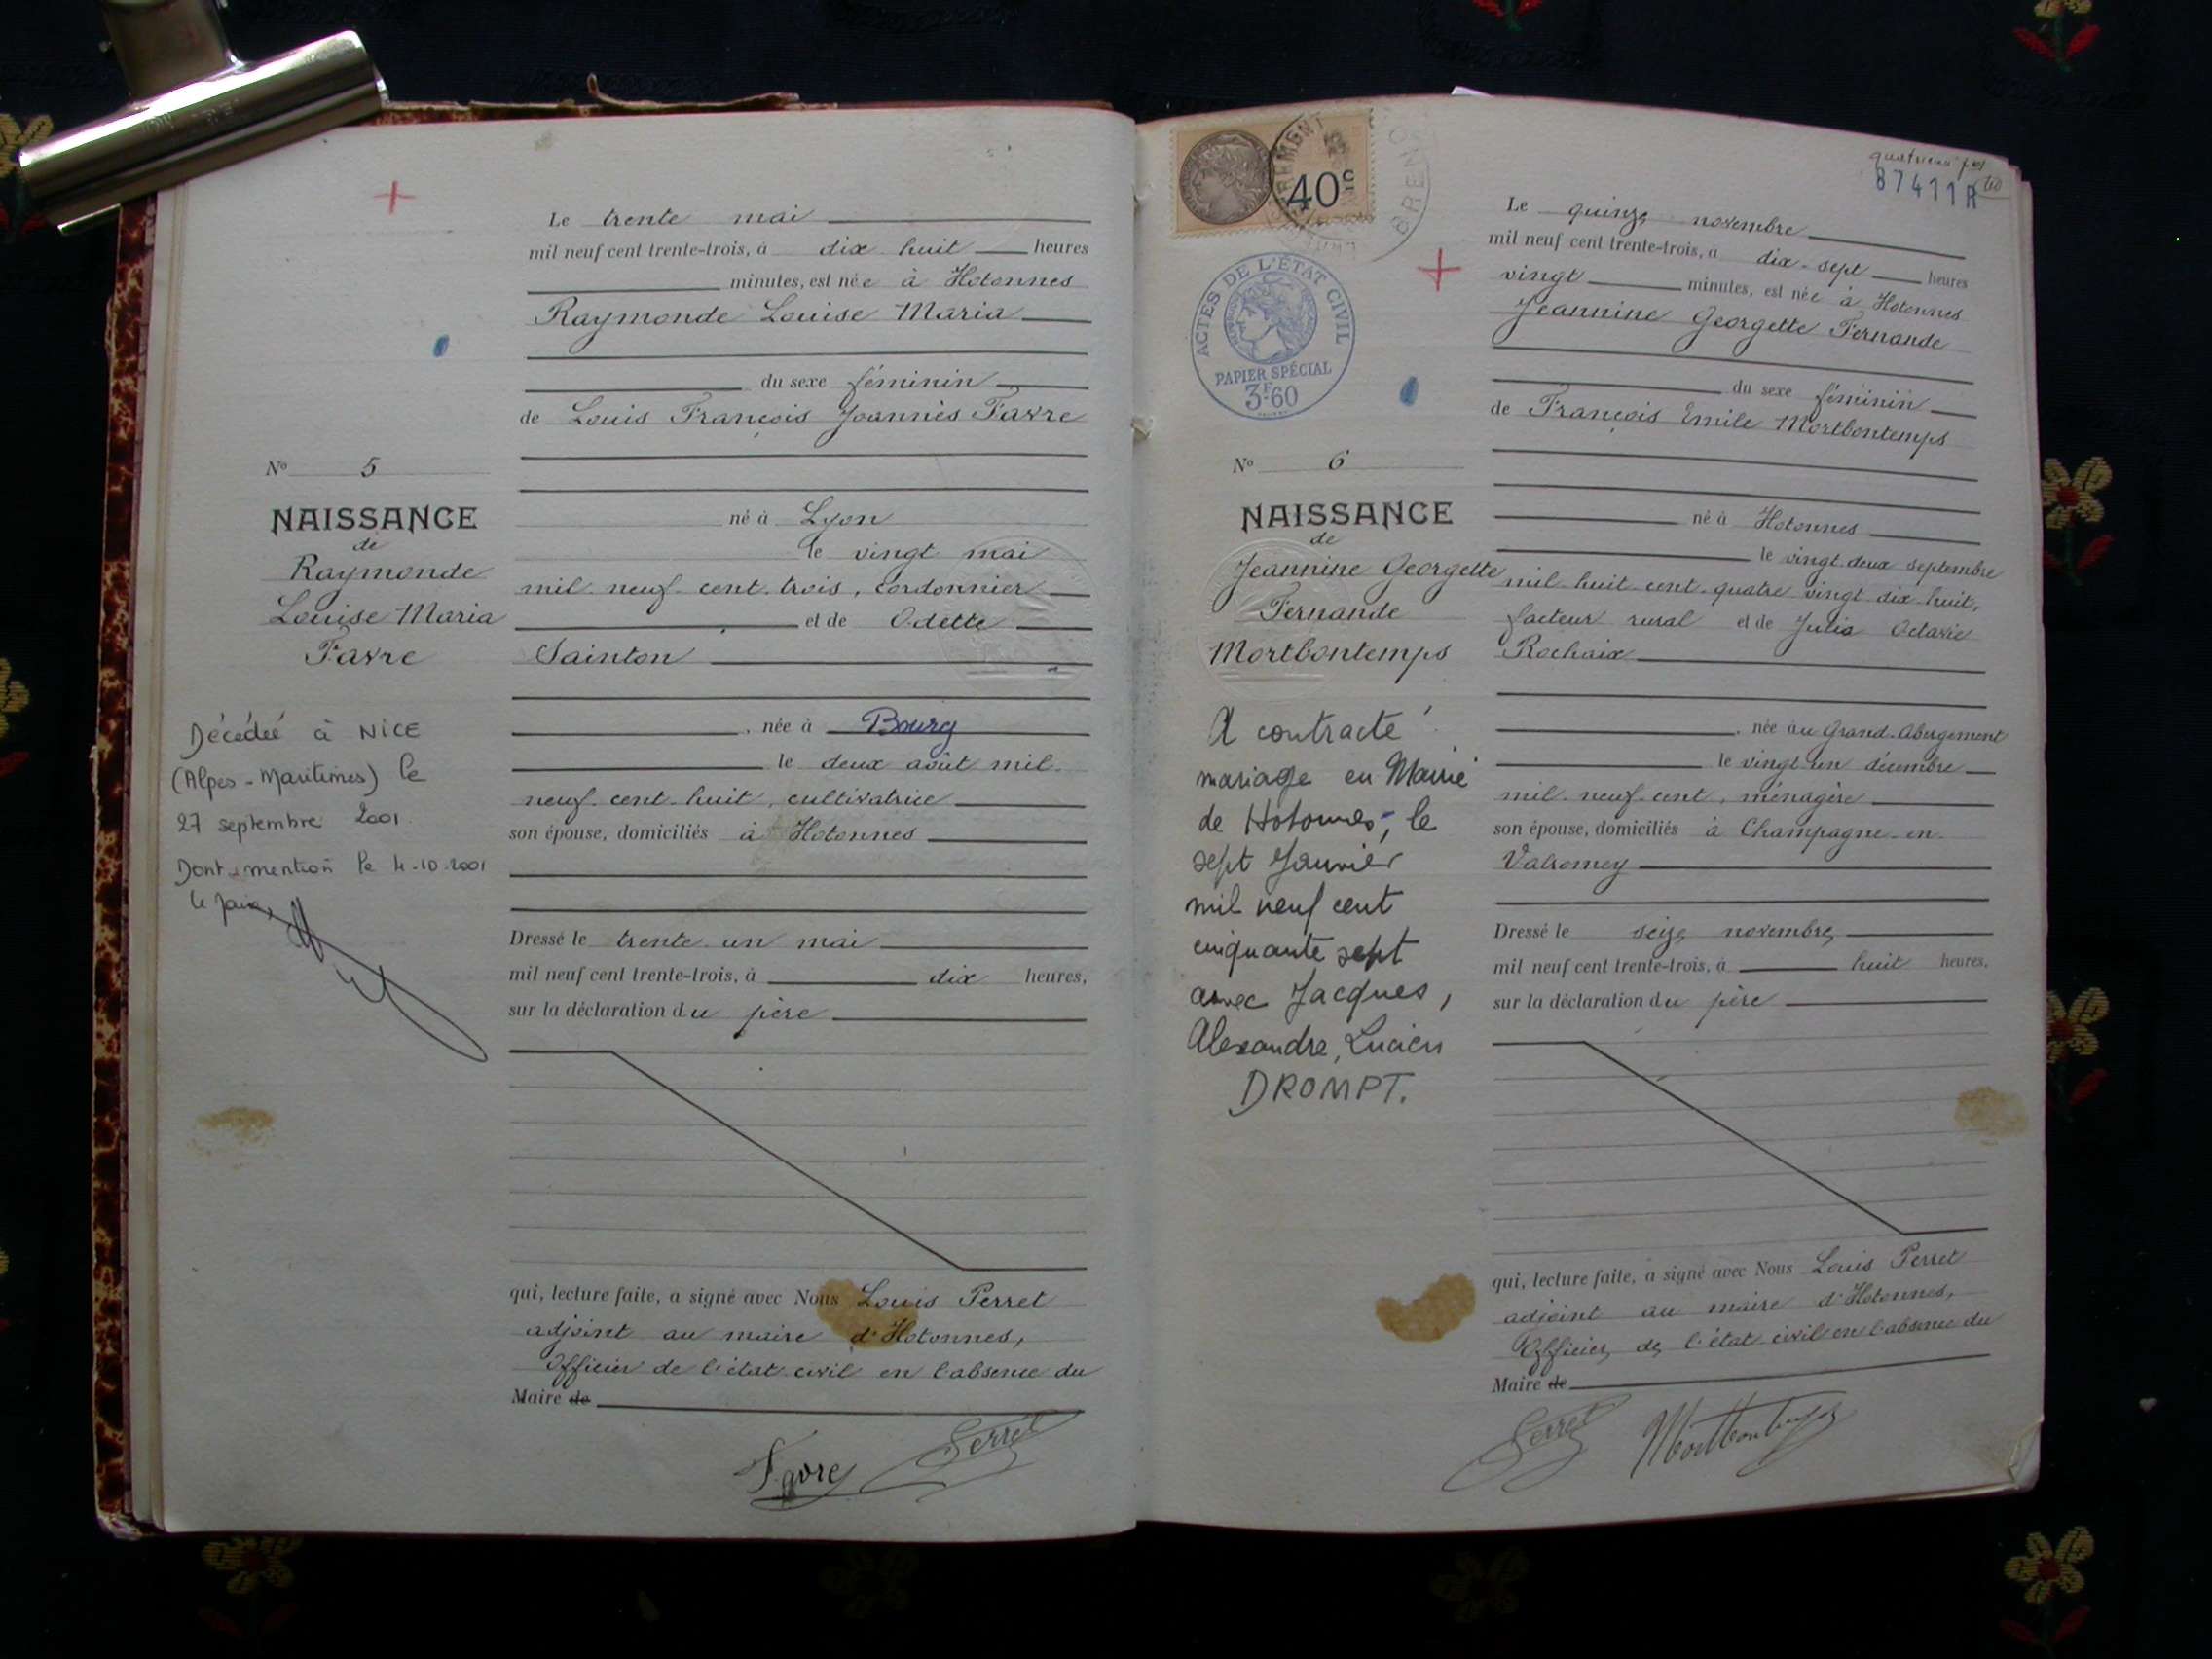 Le trente mai
mil neuf cent trente-trois, à dix huit heures
minutes, est née à Hotonnes
Raymonde Louise Maria
du sexe féminin
de Louis François Joannès Favre
N° 5
NAISSANCE
de
Raymonde
Louise Maria
Favre
né à Lyon
le vingt mai
mil neuf cent trois, cordonnier
et de Odette
Sainton
, née à Bourg
le deux août mil
neuf cent huit, cultivatrice
son épouse, domiciliés à Hotonnes
Décédée à NICE
(Alpes-Maritimes) le
27 septembre 2001.
Dont mention le 4-10-2001
Dressé le trente un mai
mil neuf cent trente-trois, à dix heures,
sur la déclaration du père
qui, lecture faite, a signé avec Nous Louis Perret
adjoint au maire d'Hotonnes,
Officier de l'état civil en l'absence du
Maire de
Favre Perret
40c
BRENO
87411R
ACTES DE L'ÉTAT CIVIL
PAPIER SPÉCIAL
3F60
Le quinze novembre
mil neuf cent trente-trois, à dix-sept heures
vingt minutes, est née à Hotonnes
Jeannine Georgette Fernande
du sexe féminin
de François Emile Mortbontemps
N° 6
NAISSANCE
de
Jeannine Georgette
Fernande
Mortbontemps
né à Hotonnes
le vingt deux septembre
mil huit cent quatre vingt dix huit,
facteur rural et de Julia Octavie
Rochaix
, née au Grand-Abergement
le vingt un décembre
mil neuf cent, ménagère
son épouse, domiciliés à Champagne-en-
Valromey
A contracté
mariage en Mairie
de Hotonnes, le
sept Janvier
mil neuf cent
cinquante sept
avec Jacques,
Alexandre, Lucien
DROMPT.
Dressé le seize novembre
mil neuf cent trente-trois, à huit heures,
sur la déclaration du père
qui, lecture faite, a signé avec Nous Louis Perret
adjoint au maire d'Hotonnes,
Officier de l'état civil en l'absence du
Maire de
Perret Mortbontemps